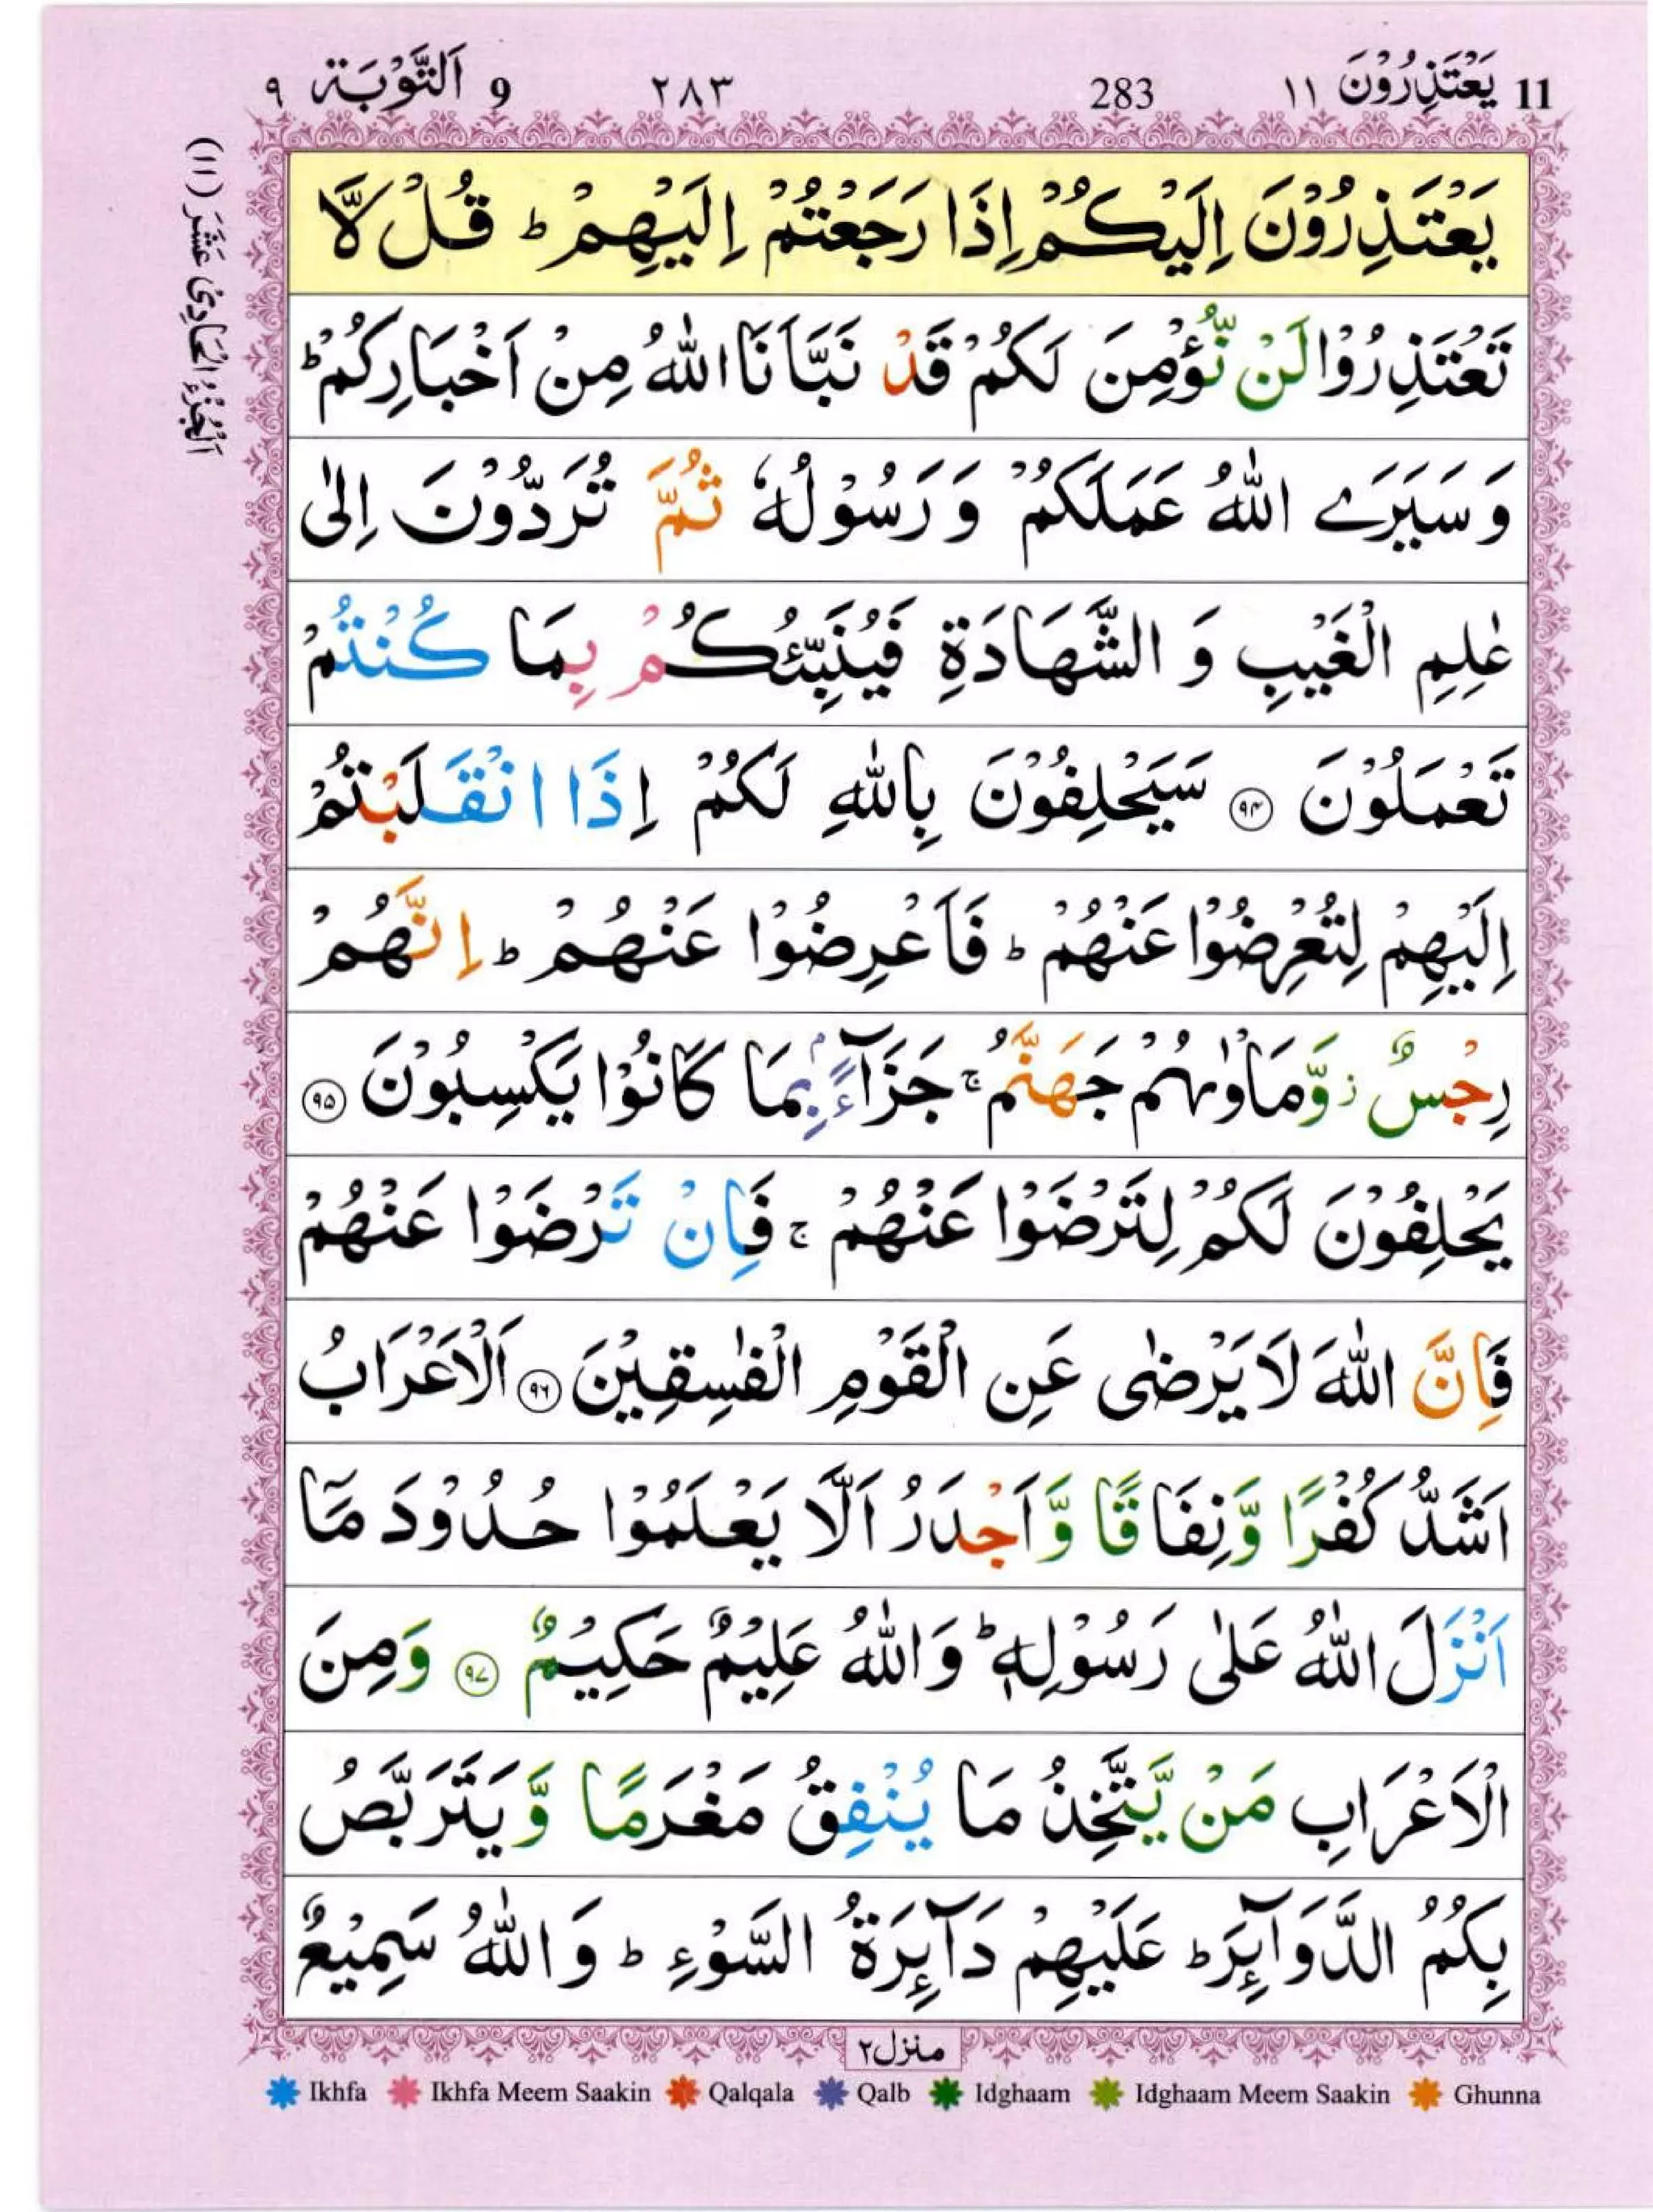 11 يَعْتَذِرُوْنَ ١١ 283 ٢٨٣ 9 اَلتَّوْبَة ٩
اَلْجُزْءُ الْحَادِیْ عَشَرَ (١١)
يَعْتَذِرُوْنَ اِلَيْكُمْ اِذَا رَجَعْتُمْ اِلَيْهِمْ ؕ قُلْ لَّا
تَعْتَذِرُوْا لَنْ نُّؤْمِنَ لَكُمْ قَدْ نَبَّاَنَا اللّٰهُ مِنْ اَخْبَارِكُمْ ؕ
وَ سَيَرَى اللّٰهُ عَمَلَكُمْ وَ رَسُوْلُهٗ ثُمَّ تُرَدُّوْنَ اِلٰى
عٰلِمِ الْغَيْبِ وَ الشَّهَادَةِ فَيُنَبِّئُكُمْ بِمَا كُنْتُمْ
تَعْمَلُوْنَ ۹۴ سَيَحْلِفُوْنَ بِاللّٰهِ لَكُمْ اِذَا انْقَلَبْتُمْ
اِلَيْهِمْ لِتُعْرِضُوْا عَنْهُمْ ؕ فَاَعْرِضُوْا عَنْهُمْ ؕ اِنَّهُمْ
رِجْسٌ ز وَّمَاْوٰىهُمْ جَهَنَّمُ ۚ جَزَآءًۢ بِمَا كَانُوْا يَكْسِبُوْنَ ۹۵
يَحْلِفُوْنَ لَكُمْ لِتَرْضَوْا عَنْهُمْ ۚ فَاِنْ تَرْضَوْا عَنْهُمْ
فَاِنَّ اللّٰهَ لَا يَرْضٰى عَنِ الْقَوْمِ الْفٰسِقِيْنَ ۹۶ اَلْاَعْرَابُ
اَشَدُّ كُفْرًا وَّنِفَاقًا وَّاَجْدَرُ اَلَّا يَعْلَمُوْا حُدُوْدَ مَآ
اَنْزَلَ اللّٰهُ عَلٰى رَسُوْلِهٖ ؕ وَاللّٰهُ عَلِيْمٌ حَكِيْمٌ ۹۷ وَمِنَ
الْاَعْرَابِ مَنْ يَّتَّخِذُ مَا يُنْفِقُ مَغْرَمًا وَّيَتَرَبَّصُ
بِكُمُ الدَّوَآئِرَ ؕ عَلَيْهِمْ دَآئِرَةُ السَّوْءِ ؕ وَاللّٰهُ سَمِيْعٌ
منزل۲
Ikhfa Ikhfa Meem Saakin Qalqala Qalb Idghaam Idghaam Meem Saakin Ghunna